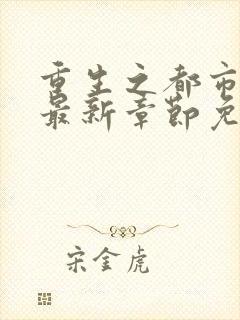 重生之都市
最新章节免
宋金虎